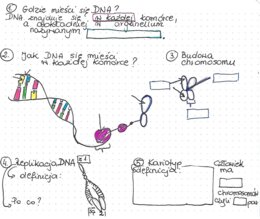 ① Gdzie mieści się DNA?
DNA znajduje się w każdej komórce,
a dokładniej w organellum
nazywanym:
② Jak DNA się mieści
w każdej komórce?
③ Budowa
chromosomu
④ Replikacja DNA
↳ definicja:
Po co?
⑤ Kariotyp
definicja:
Człowiek
ma
chromosomów
czyli par